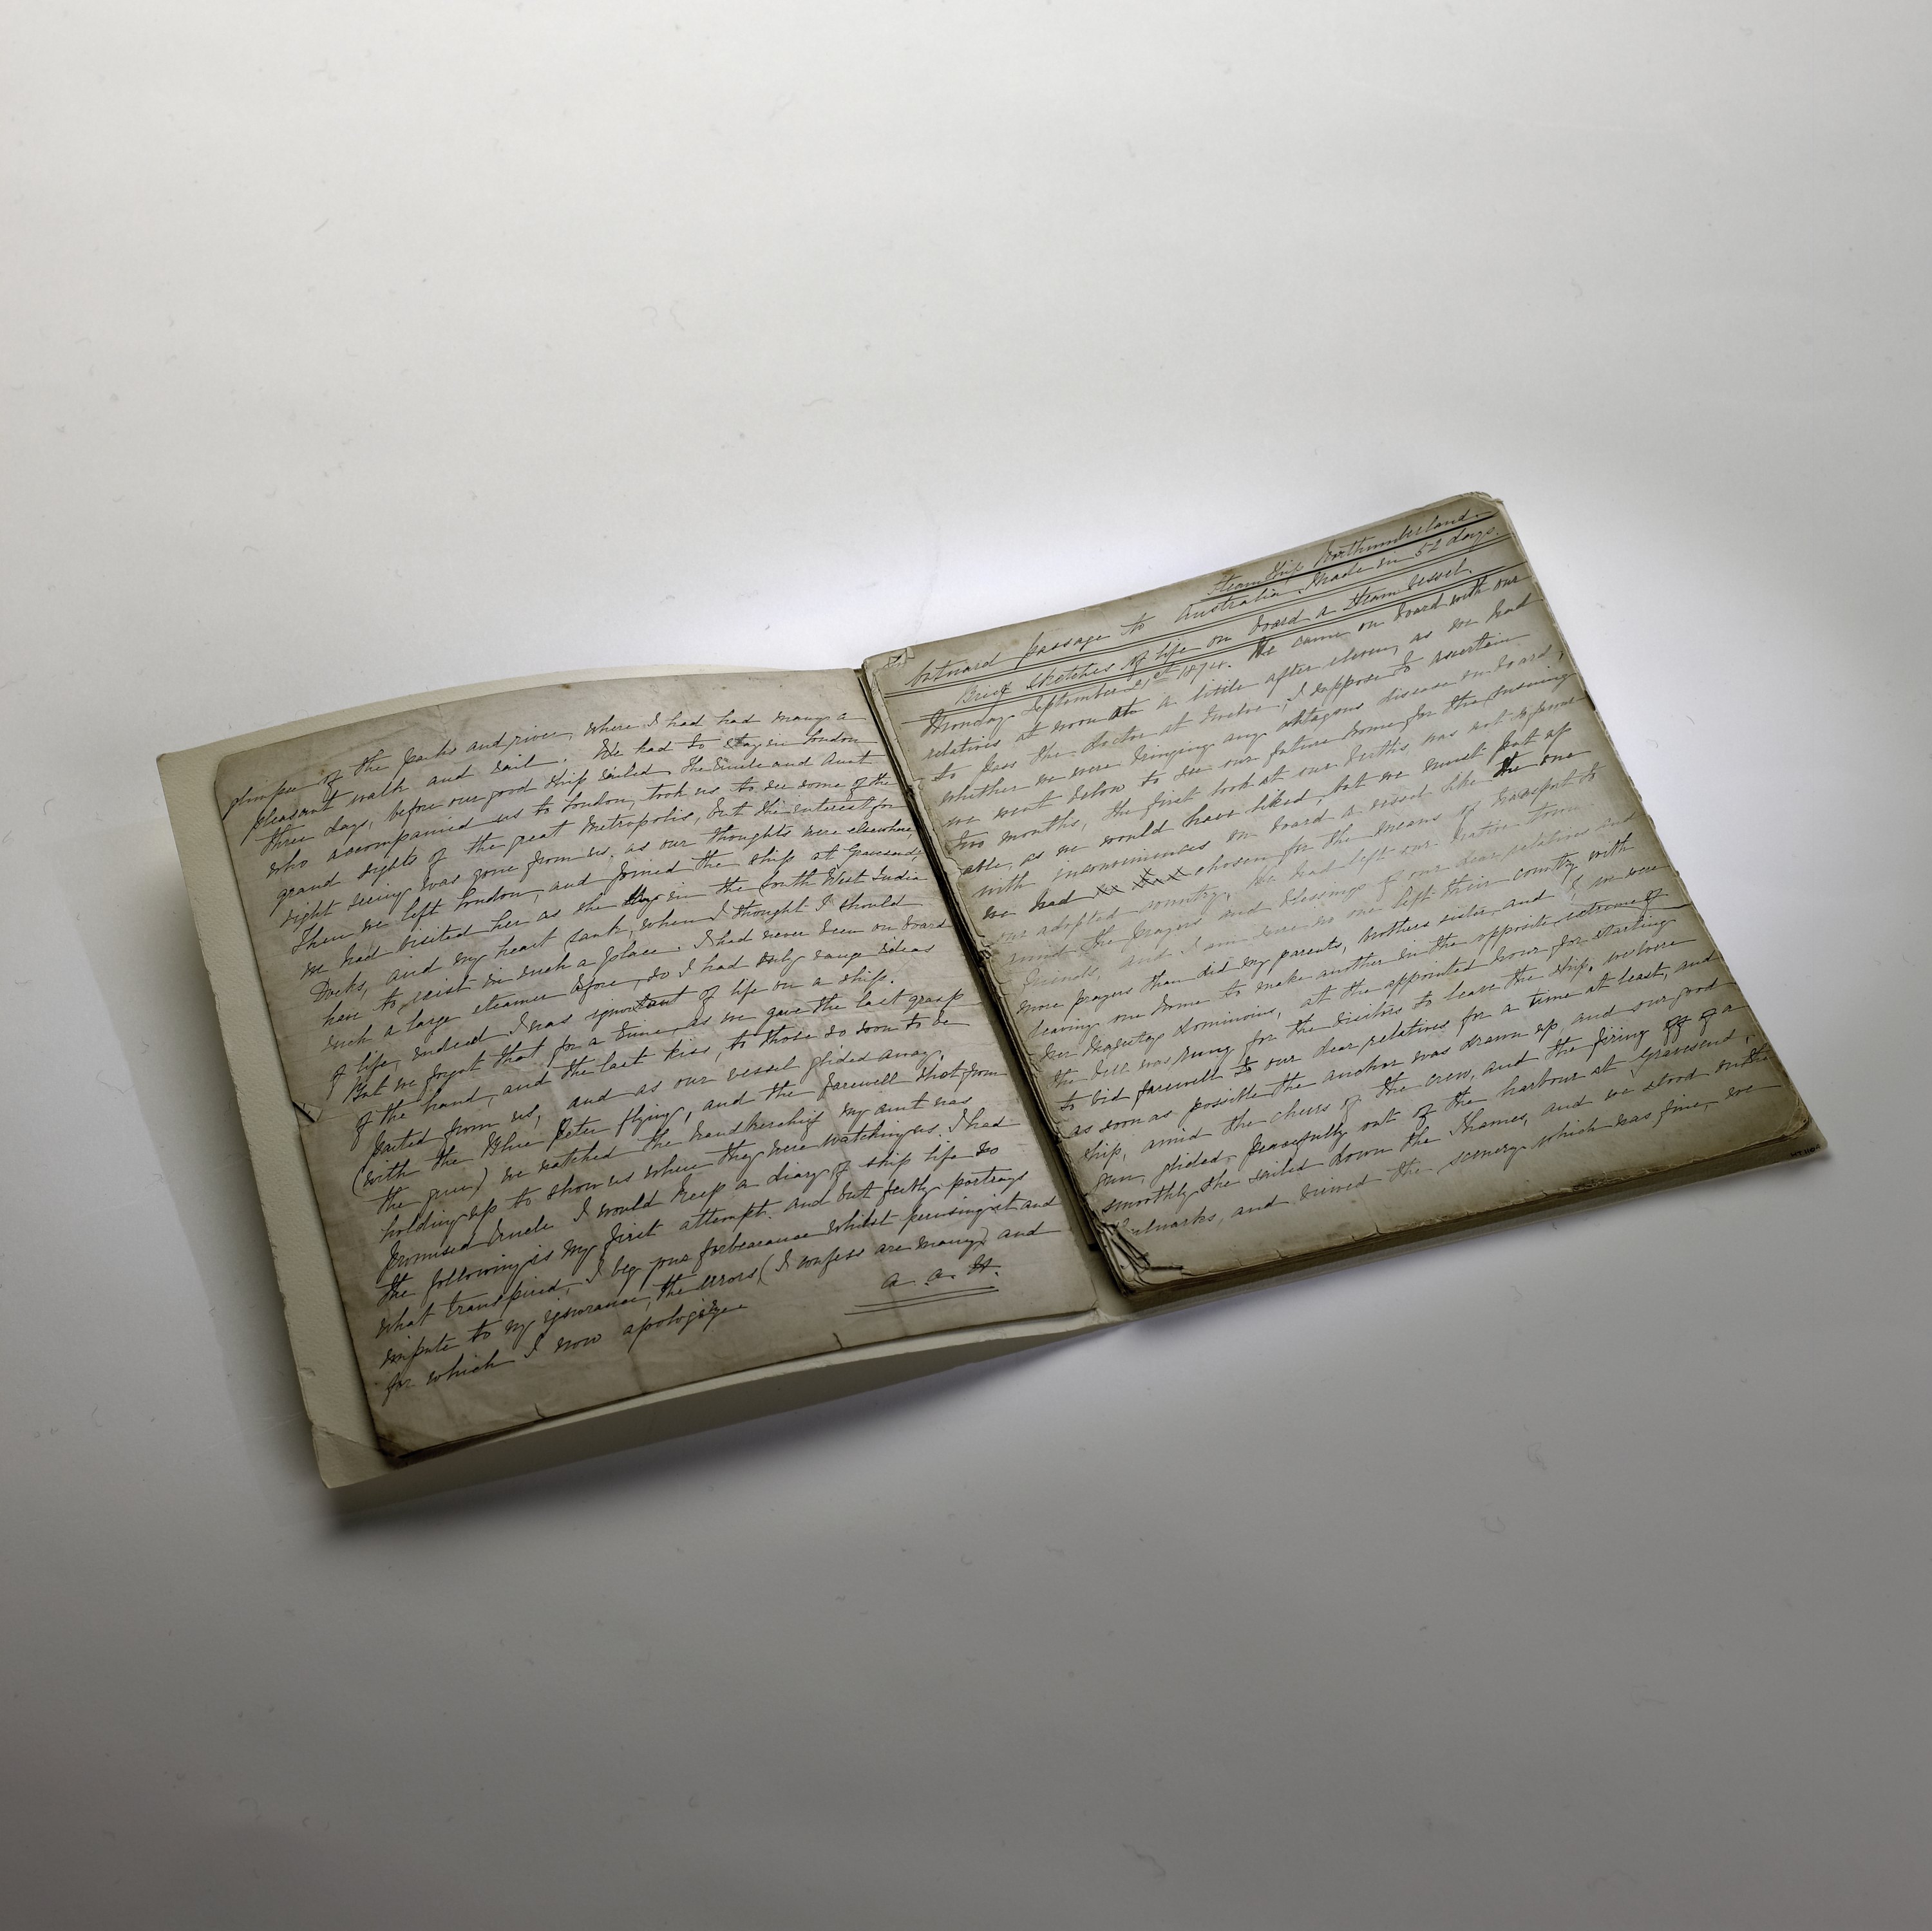 glimpse of the Parks and river, where I had had many a
pleasant walk and sail. We had to stay in London
three days, before our good ship sailed. The Uncle and Aunt
who accompanied us to London, took us to see some of the
grand sights of the great Metropolis, but the interest for
sight seeing was gone from us, as our thoughts were elsewhere,
Then we left London, and joined the ship at Gravesend,
we had visited her as she lay in the South West India
Docks, and my heart sank, when I thought I should
have to exist in such a place. I had never been on board
such a large steamer before, so I had only vague ideas
of life, indeed I was ignorant of life on a ship.
But we forgot that for a time, as we gave the last grasp
of the hand, and the last kiss, to those so soon to be
parted from us, and as our vessel glided away,
(with the Blue Peter flying, and the farewell shot from
the gun) we watched the handkerchief my aunt was
holding up to show us where they were watching us. I had
promised Uncle I would keep a diary of ship life so
the following is my first attempt. and but feebly portrays
what transpired, I beg your forbearance whilst perusing it and
impute to my ignorance, the errors (I confess are many) and
for which I now apologize
A. A. H.
Steam Ship Northumberland.
Outward passage to Australia. Made in 52 days.
Brief Sketches of life on board a Steam Vessel.
Monday September 21st 1874. We came on board with our
relatives at noon a little after eleven, as we had
to pass the doctor at twelve, I suppose to ascertain
whether we were bringing any disease on board,
we went below to see our future home for the ensuing
two months, the first look at our berths, was not so favor
able, as we would have liked, but we must put up
with inconveniences on board a vessel like the one
we had chosen for the means of transport to
our adopted country, We had left our native town
amid the prayers and blessings of our dear relatives and
friends, and I am sure no one left their country with
more prayers than did my parents, brothers sister, and I, we were
leaving one home to make another in the opposite extreme of
Her Majestys dominions, at the appointed hour for starting
the bell was rung for the visitors to leave the ship, we were
to bid farewell to our dear relatives for a time at least, and
as soon as possible the anchor was drawn up, and our good
ship, amid the cheers of the crew, and the firing off of a
gun, glided peacefully out of the harbour at Gravesend,
smoothly she sailed down the Thames, and we stood on the
Bulwarks, and viewed the scenery which was fine, we